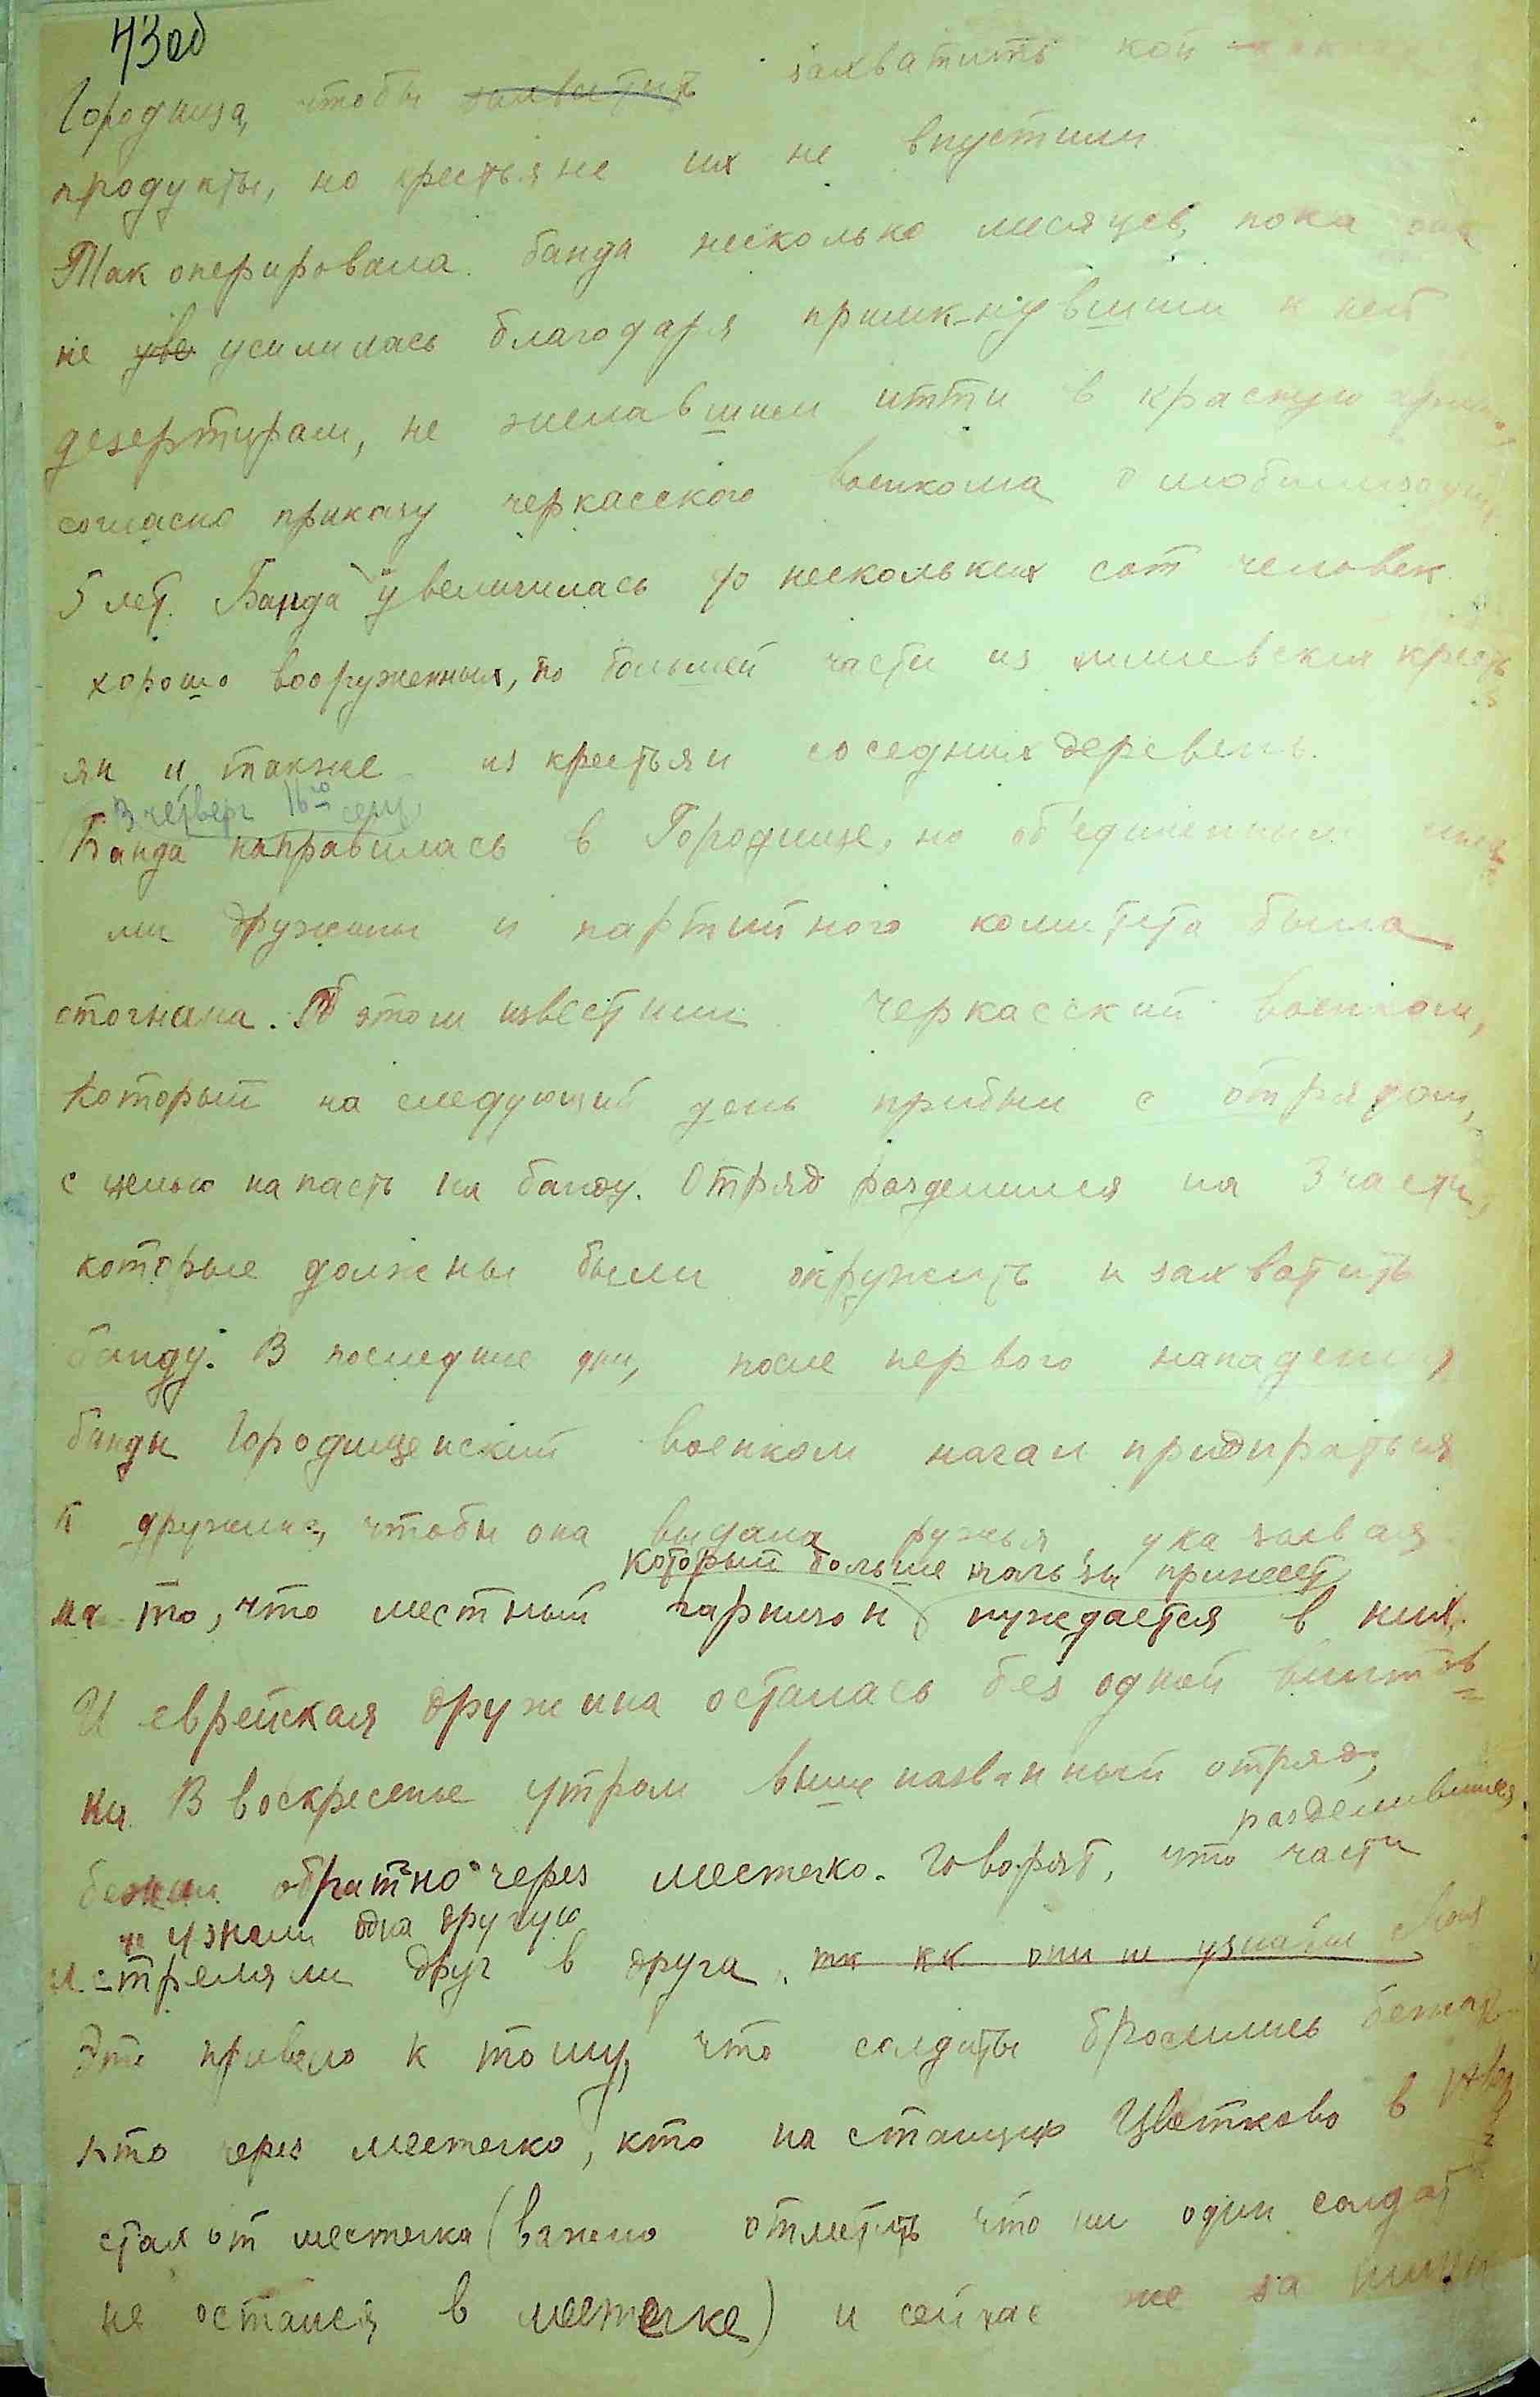 43об
Городища, чтобы захватить захватить кой
продукты, но крестьяне их не впустили
Так оперировала банда несколько месяцев, пока она
не уве усилилась благодаря примкнувшим к ней
дезертирам, не желавшим итти в красную
согласно приказу черкасского военкома о мобилизации
5 лет. Банда увеличилась до нескольких сот человек
хорошо вооруженных, по большей части из крест
ян и также из крестьян соседних деревень.
В четверг 16го
Банда направилась в Городище, но об'единенными
ми дружины и партийного комитета была
отогнана. Об этом известили черкасский военком,
который на следующий день прибыл с отрядом,
с целью напасть на банду. Отряд разделился на 3 части,
которые должны были окружить и захватить
банду. В последние дни, после первого нападения
банды Городищенский военком начал придираться
к дружине, чтобы она выдала ружья, указывая
который больше пользы принесет
на то, что местный гарнизон нуждается в них.
И еврейская дружина осталась без одной винтов
ки. В воскресенье утром вышеназванный отряд,
разделившиеся
бежал обратно через местечко. Говорят, что части
не узнали одна другую
и стреляли друг в друга, тк кк они
Это привело к тому, что солдаты бросились бежать
кто через местечко, кто на станцию Цветково в
стах от местечка (важно отметить что ни один солдат
не остался в местечке) и сейчас же за ними